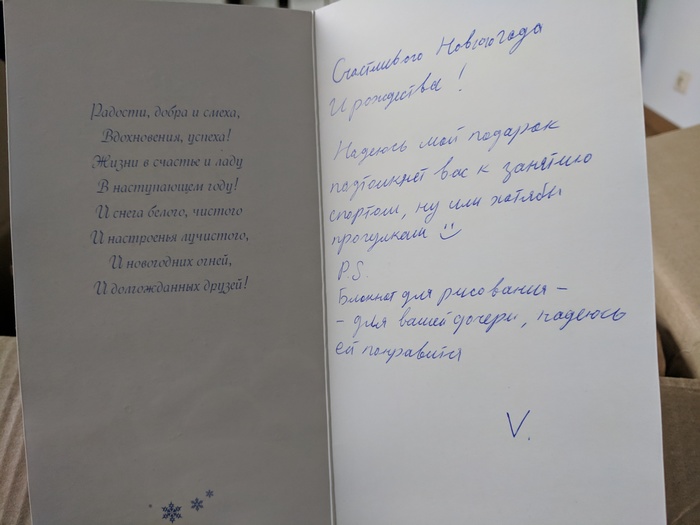 Радости, добра и смеха,
Вдохновения, успеха!
Жизни в счастье и ладу
В наступающем году!
И снега белого, чистого
И настроенья лучистого,
И новогодних огней,
И долгожданных друзей!
Счастливого Нового Года
И рождества!
Надеюсь мой подарок
подтолкнёт вас к занятию
спортом, ну или хотябы
прогулкам
P.S.
Блокнот для рисования -
- для вашей дочери, надеюсь
ей понравится
V.